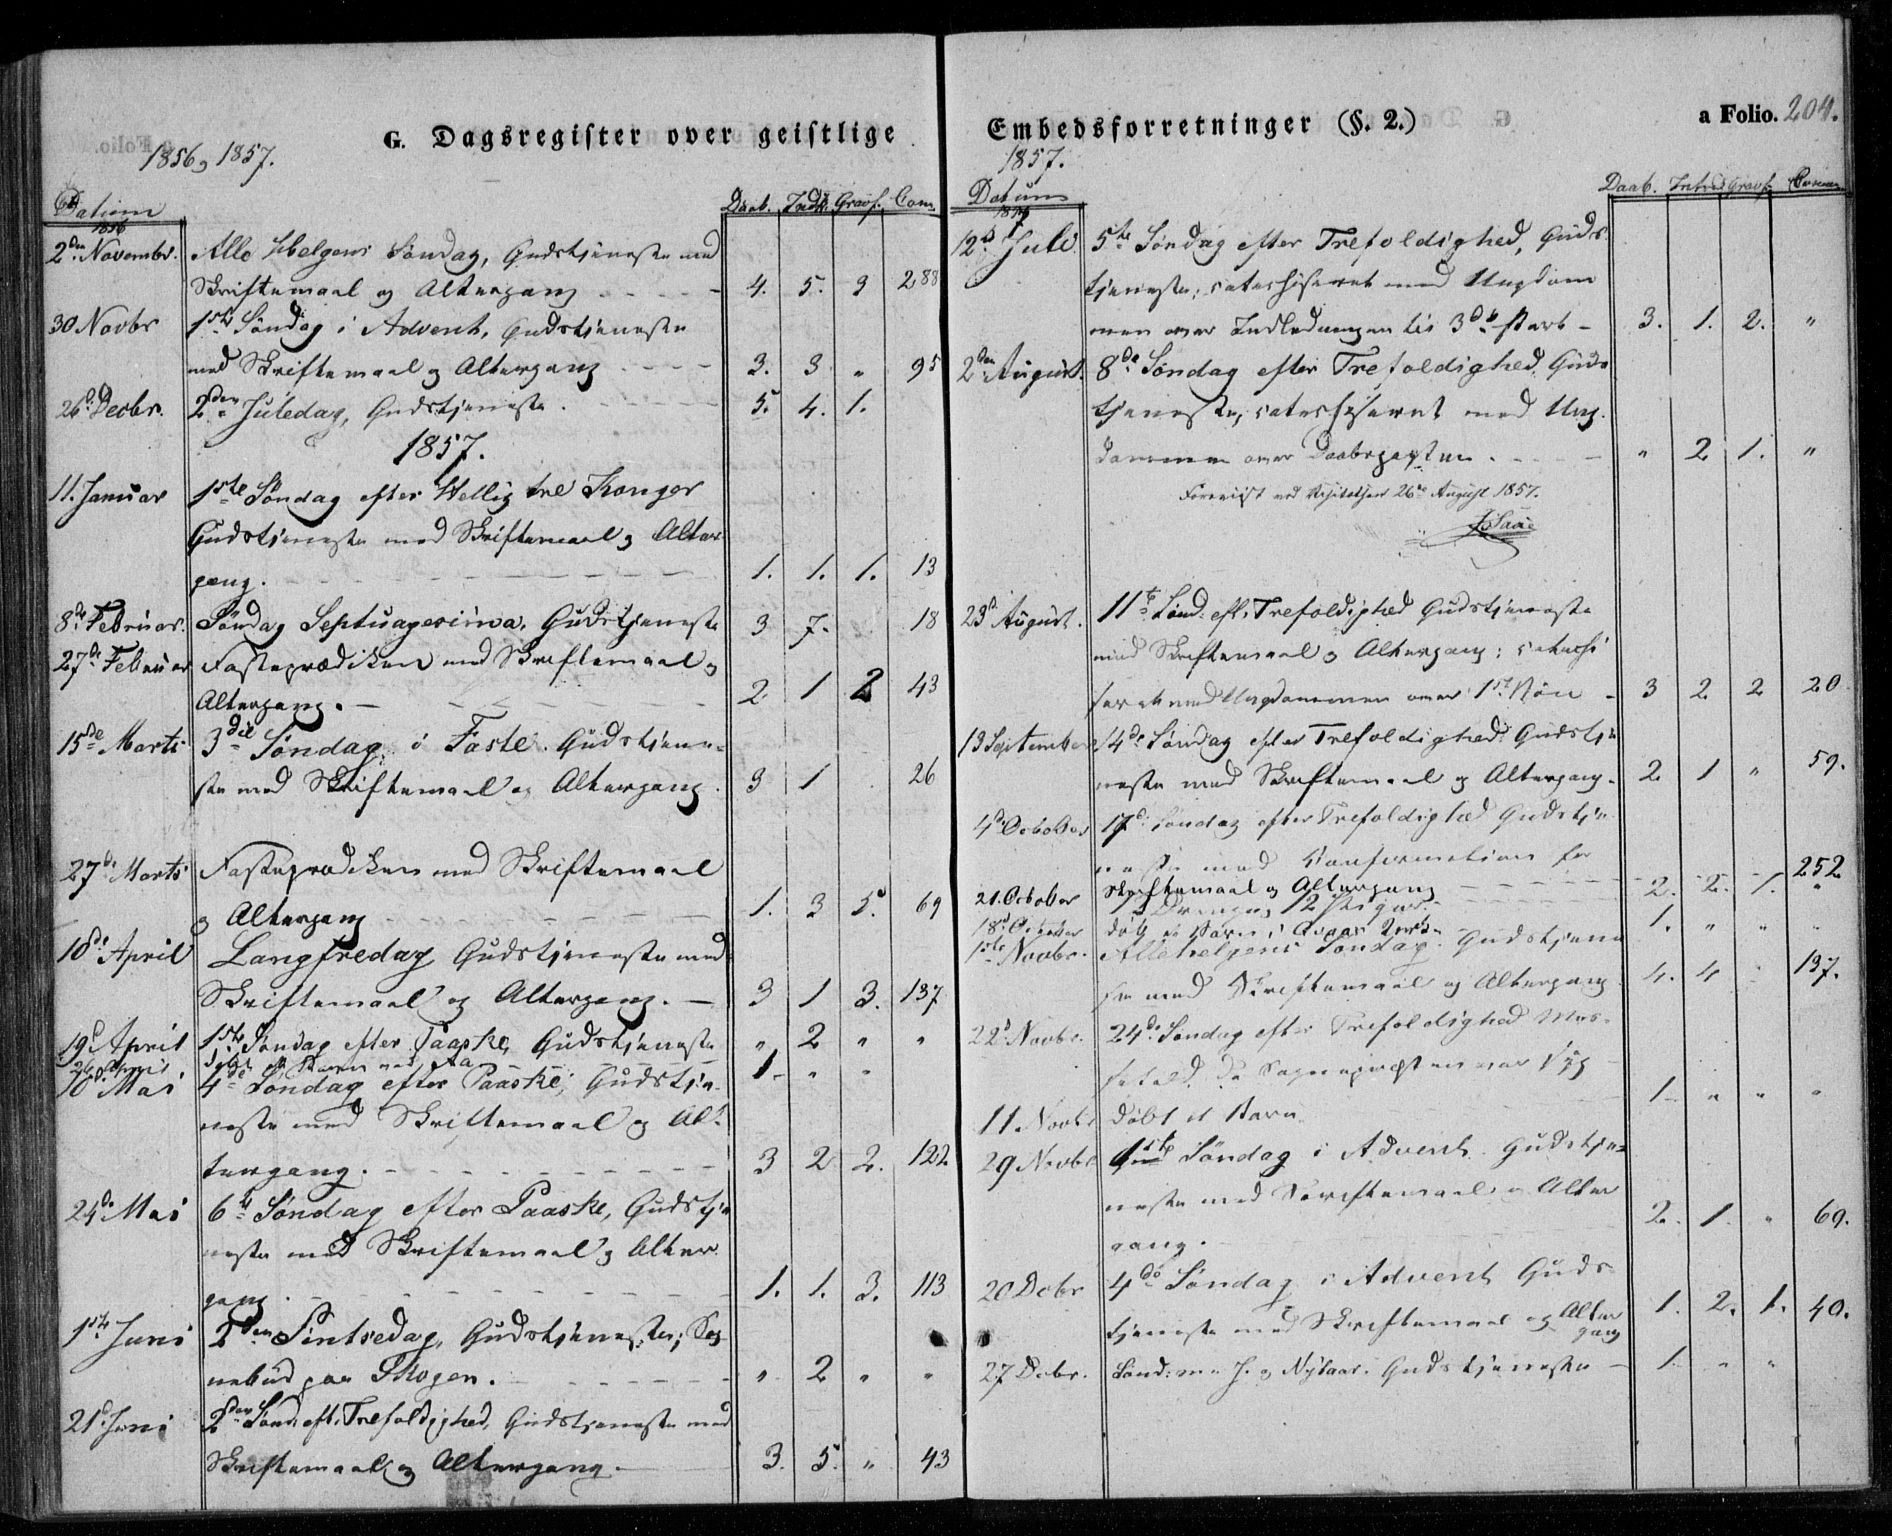 G. Dagsregister over geistlige
1856 og 1857.
Datum Daab. Indl. Gravf. Com.
1856
2den Novembr. Alle Helgens Søndag, Gudstjeneste med
Skriftemaal og Altergang 4. 5. 3 288
30 Novbr 1ste Søndag i Advent, Gudstjeneste
med Skriftemaal og Altergang 3. 3 " 95
26d Decbr. 2den Juledag, Gudstjeneste. 5. 4. 1.
1857.
11. Januar 1ste Søndag efter Hellig tre Konger
Gudstjeneste med Skriftemaal og Alter
gang. 1. 1. 1. 13
8de Februar. Søndag Septuagesima, Gudstjeneste 3 7. 18
27de Februar Fasteprædiken med Skriftemaal og
Altergang. 2 1 2 43
15de Marts 3die Søndag i Faste. Gudstjene-
ste med Skriftemaal og Altergang. 3 1 26
27de Marts Fasteprædiken med Skriftemaal
og Altergang 1. 3 5. 69
10de April Langfredag Gudstjeneste med
Skriftemaal og Altergang. 3 1 3. 137
19d April 1ste Søndag efter Paaske, Gudstjeneste " 2 " "
26 April 1. " "
10d Mai 4de Søndag efter Paaske, Gudstje-
neste med Skriftemaal og Al-
tergang. 3 2 2. 122
24de Mai 6te Søndag efter Paaske, Gudstje
neste med Skriftemaal og Alter
gang. 1. 1. 3. 113
1ste Juni 2den Pintsedag, Gudstjeneste; Sog
nebud paa Skogen. " 2 " "
21d Juni 2den Sønd. eft. Trefoldighed, Gudstjeneste med
Skriftemaal og Altergang. 3. 5. " 43
Embedsforretninger (§. 2.) a Folio. 204.
1857.
Datum Daab. Introd Gravf.
12d Juli 5te Søndag efter Trefoldighed, Guds
tjeneste; catechiseret med Ungdom
men over Indledningen til 3die Part 3. 1. 2. "
2den August. 8de Søndag efter Trefoldighed. Guds
tjeneste, catechiseret med Ung
dommen over Daabspagten. " 2 1. "
Foreviist ved Visitatsen 26de August 1857.
23d August. 11te Sønd. eft. Trefoldighed Gudstjeneste
med Skriftemaal og Altergang; catechi
seret med Ungdommen over 1ste Bøn 3 2 2 20
13 September 14de Søndag efter Trefoldighed Gudstje
neste med Skriftemaal og Altergang. 2 1 " 59.
4de October 17de Søndag efter Trefoldighed Gudstje
neste med Confirmation for
21. October Skriftemaal og Altergang 2. 2. 1. 252
18d October døbt et Barn i 1. " " "
1ste Novbr. Allehelgens Søndag. Gudstjene
ste med Skriftemaal og Altergang 4. 4 " 137.
22d Novbr. 24de Søndag efter Trefoldighed Mes-
sefald, da Sognepræsten var syg
11 Novbr døbt et Barn 1 " " "
29 Novbr 1ste Søndag i Advent. Gudstje-
neste med Skriftemaal og Alter
gang. 2. 1. " 69.
20 Decbr 4de Søndag i Advent Guds
tjeneste med Skriftemaal og Alter
gang 1. 2. 1. 40.
27 Decbr. Sønd. m. J. og Nytaar. Gudstjeneste 1. " "